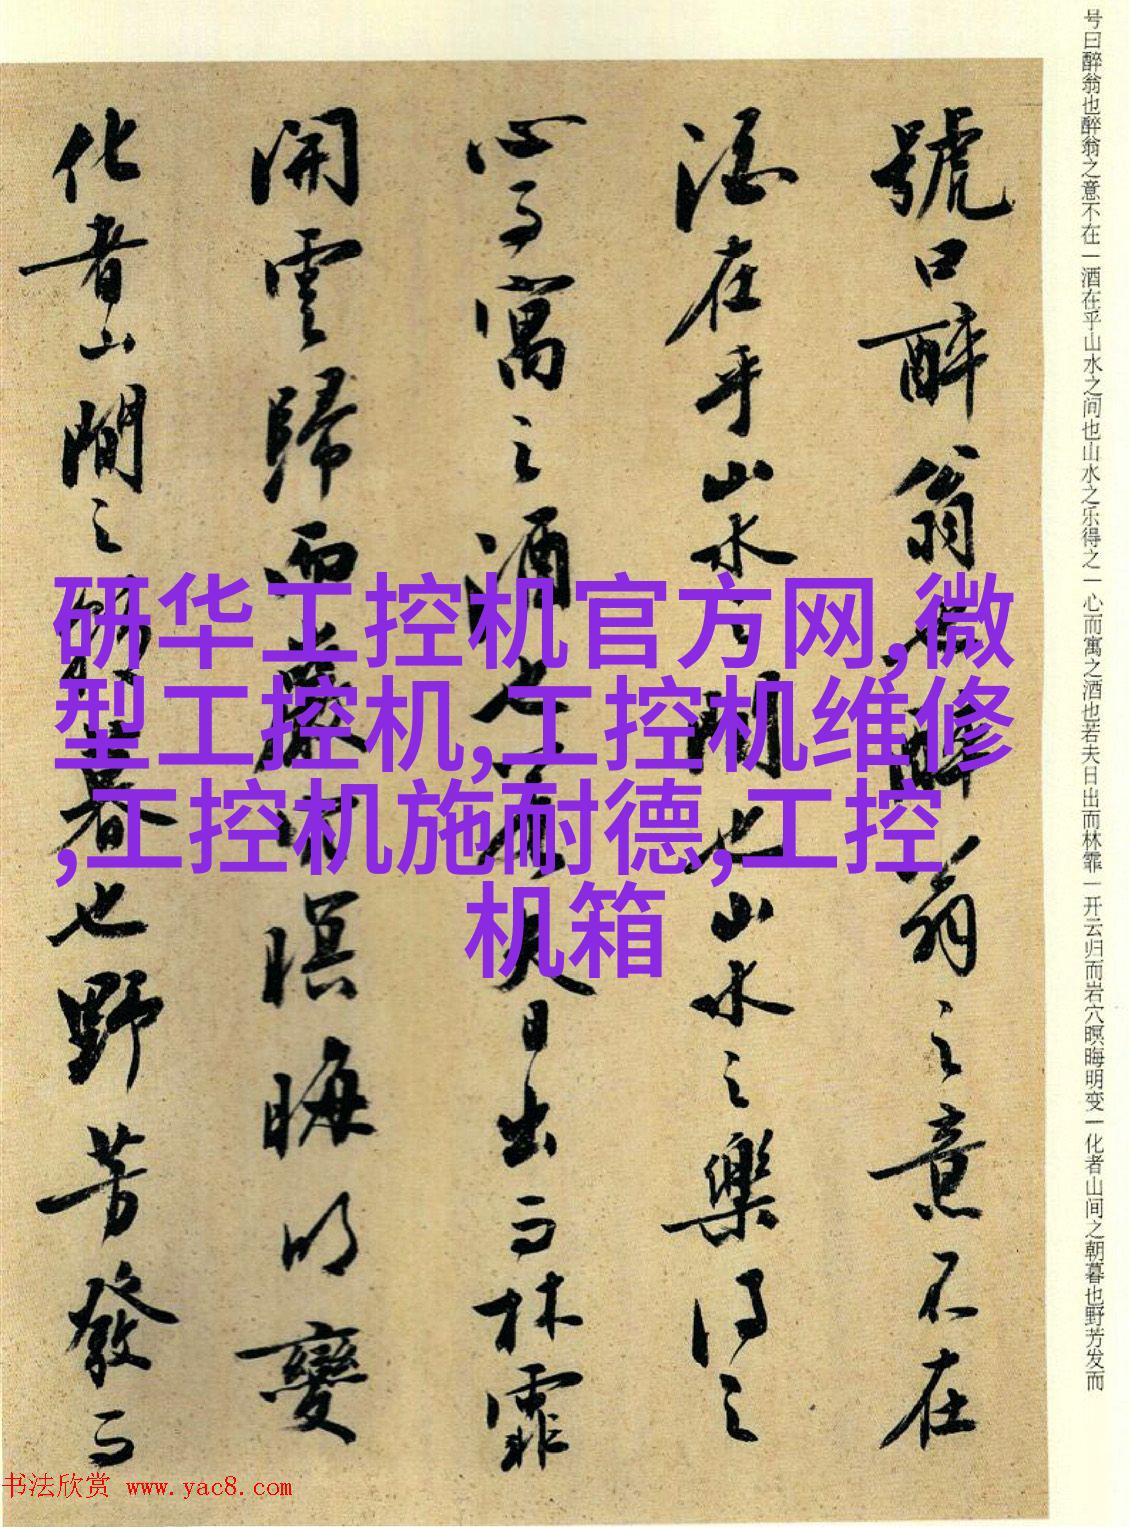 号曰醉翁也醉翁之意不在一酒在乎山水之间也山水之乐得之一心而寓之酒也若夫日出而林霏一开云归而岩穴暝晦明变一化者山间之朝暮也野芳发而
號曰醉翁也醉翁之意不在
酒在乎山水之間也山水之樂得之
心而寓之酒也若夫日出而林霏
開雲歸而巖穴暝晦明變
化者山間之朝暮也野芳發而
研华工控机官方网,微
型工控机,工控机维修
,工控机施耐德,工控
机箱
书法欣赏 www.yac8.com